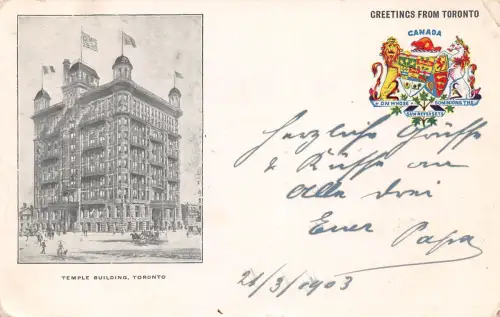 GREETINGS FROM TORONTO
CANADA
ON WHOSE DOMINIONS THE
SUN NEVER SETS
Herzliche Grüsse
& Küsse an
Alle drei
Euer Papa
21/3/1903
TEMPLE BUILDING, TORONTO